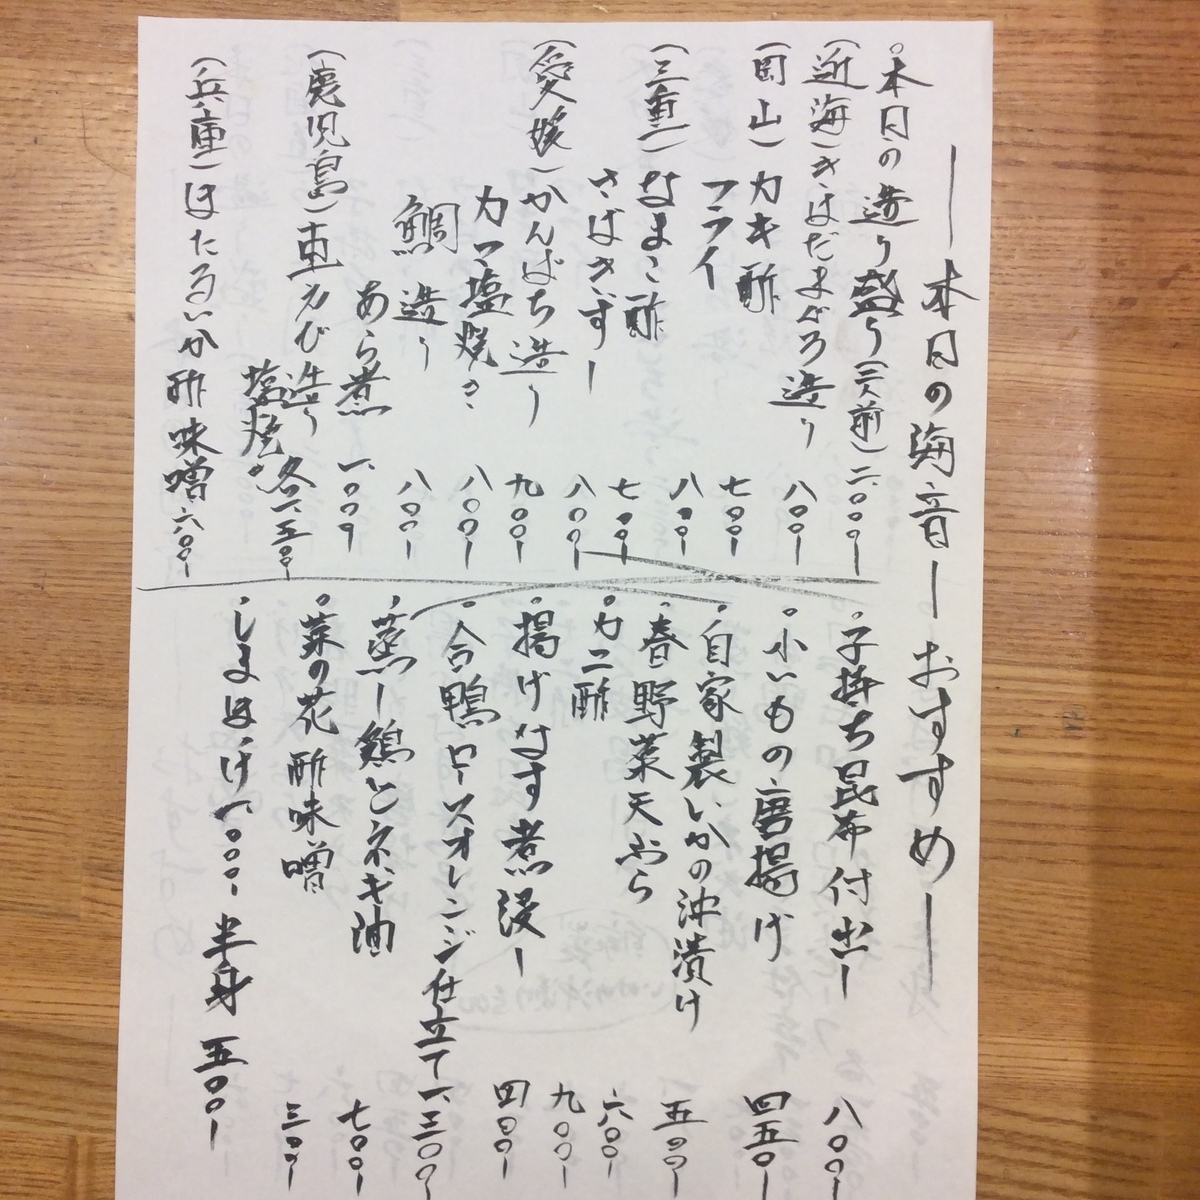 本日の海音 おすすめ
本日の造り盛り(二人前) 二、〇〇〇
(近海)きはだまぐろ造り 八〇〇
(岡山)カキ酢 七〇〇
フライ 八〇〇
(三重)なまこ酢 七〇〇
さばきずし 八〇〇
(愛媛)かんぱち造り 九〇〇
カマ塩焼き 八〇〇
鯛造り 八〇〇
あら煮 一、〇〇〇
(鹿児島)車えび造り
塩焼き 各一、五〇〇
(兵庫)ほたるいか酢味噌 六八〇
子持ち昆布付出し 八〇〇
小いもの唐揚げ 四五〇
自家製いかの沖漬け 五〇〇
春野菜天ぷら 六〇〇
カニ酢 九〇〇
揚げなす煮浸し 四〇〇
合鴨ロースオレンジ仕立て 一、三〇〇
蒸し鶏とネギ油 七〇〇
菜の花酢味噌 三〇〇
しまほっけ 一、〇〇〇 半身 五〇〇